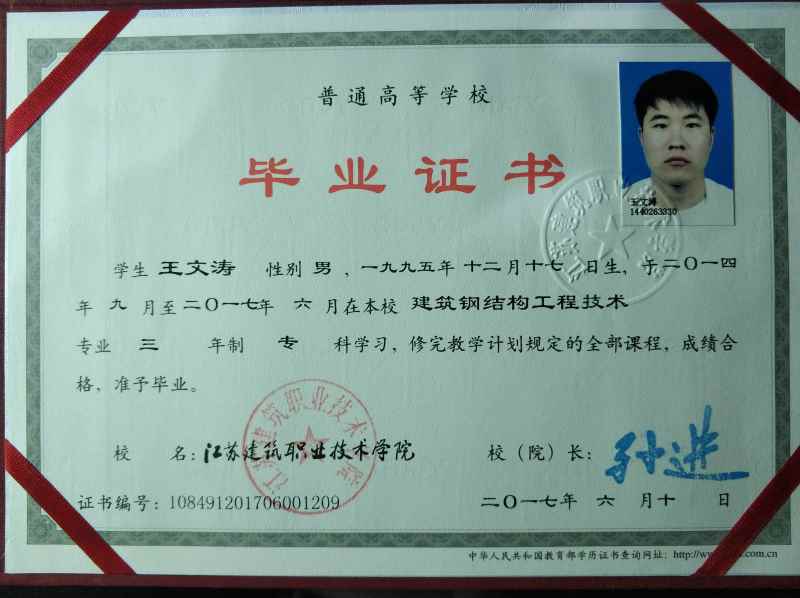 普通高等学校
毕业证书
王文涛
1440263330
学生 王文涛 性别 男 、一九九五年 十二月十七 日生，于二〇一四
年 九 月至二〇一七年 六 月在本校 建筑钢结构工程技术
专业 三 年制 专 科学习，修完教学计划规定的全部课程，成绩合
格，准予毕业。
江苏建筑职业技术学院
校 名：江苏建筑职业技术学院
校（院）长：孙进
证书编号：108491201706001209
二〇一七年 六 月十 日
中华人民共和国教育部学历证书查询网址：http://www. .com.cn